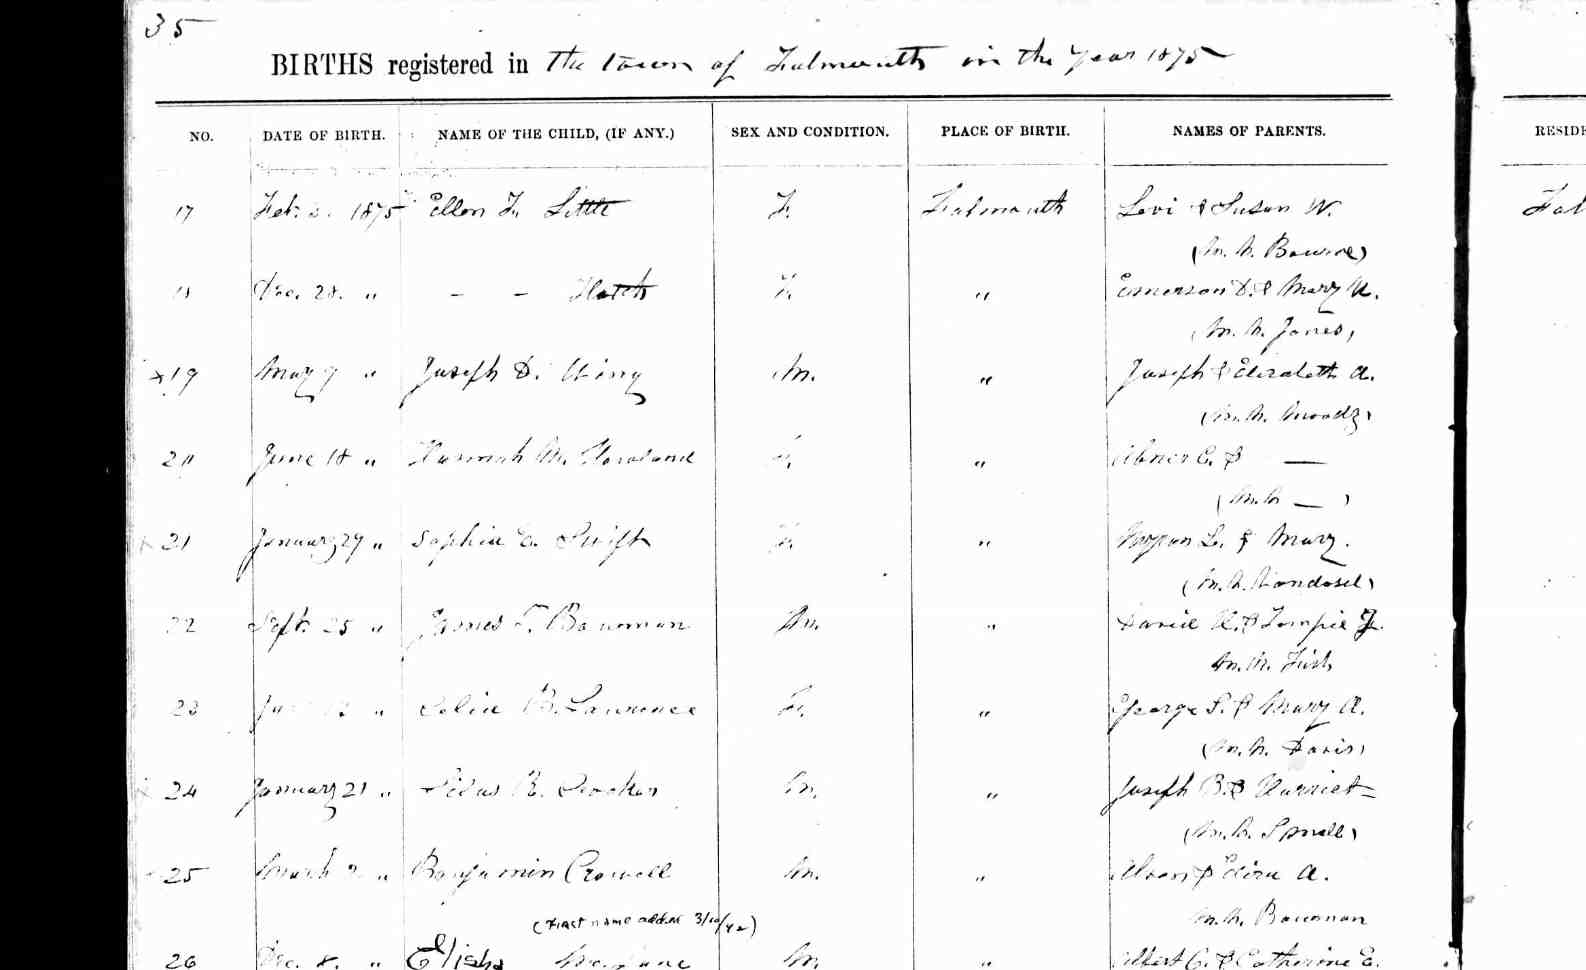 35
BIRTHS registered in the town of Falmouth in the Year 1875
NO. DATE OF BIRTH. NAME OF THE CHILD, (IF ANY.) SEX AND CONDITION. PLACE OF BIRTH. NAMES OF PARENTS.
17 Feb. 1875 Ellen F. Little F. Falmouth Levi & Susan W.
(M. N. Bourne)
18 Dec. 28. " - - Hatch F. " Emerson D. & Mary A.
(M. N. Jones)
19 May 9 " Joseph D. Wing M. " Joseph & Elizabeth A.
(M. N. Moody)
20 June 18 " Hannah M. F. " Abner C. & —
(M. N. — )
21 January 29 " Sophia E. Swift F. " L. & Mary.
(M. N.
22 Sept. 25 " James T. Bowman M. " David & Temple
M. N. Fish
23 " Celia B. Lawrence F. " George S. & Mary A.
(M. N. Davis)
24 January 21 " Silas R. Crocker M. " Joseph B. & Harriet
(M. N. Small)
25 March 2 " Benjamin Crowell M. " & A.
M. N. Bowman
(First name added 3/10/42)
26 Dec. 8. " Elisha M. " Albert C. & Catherine E.